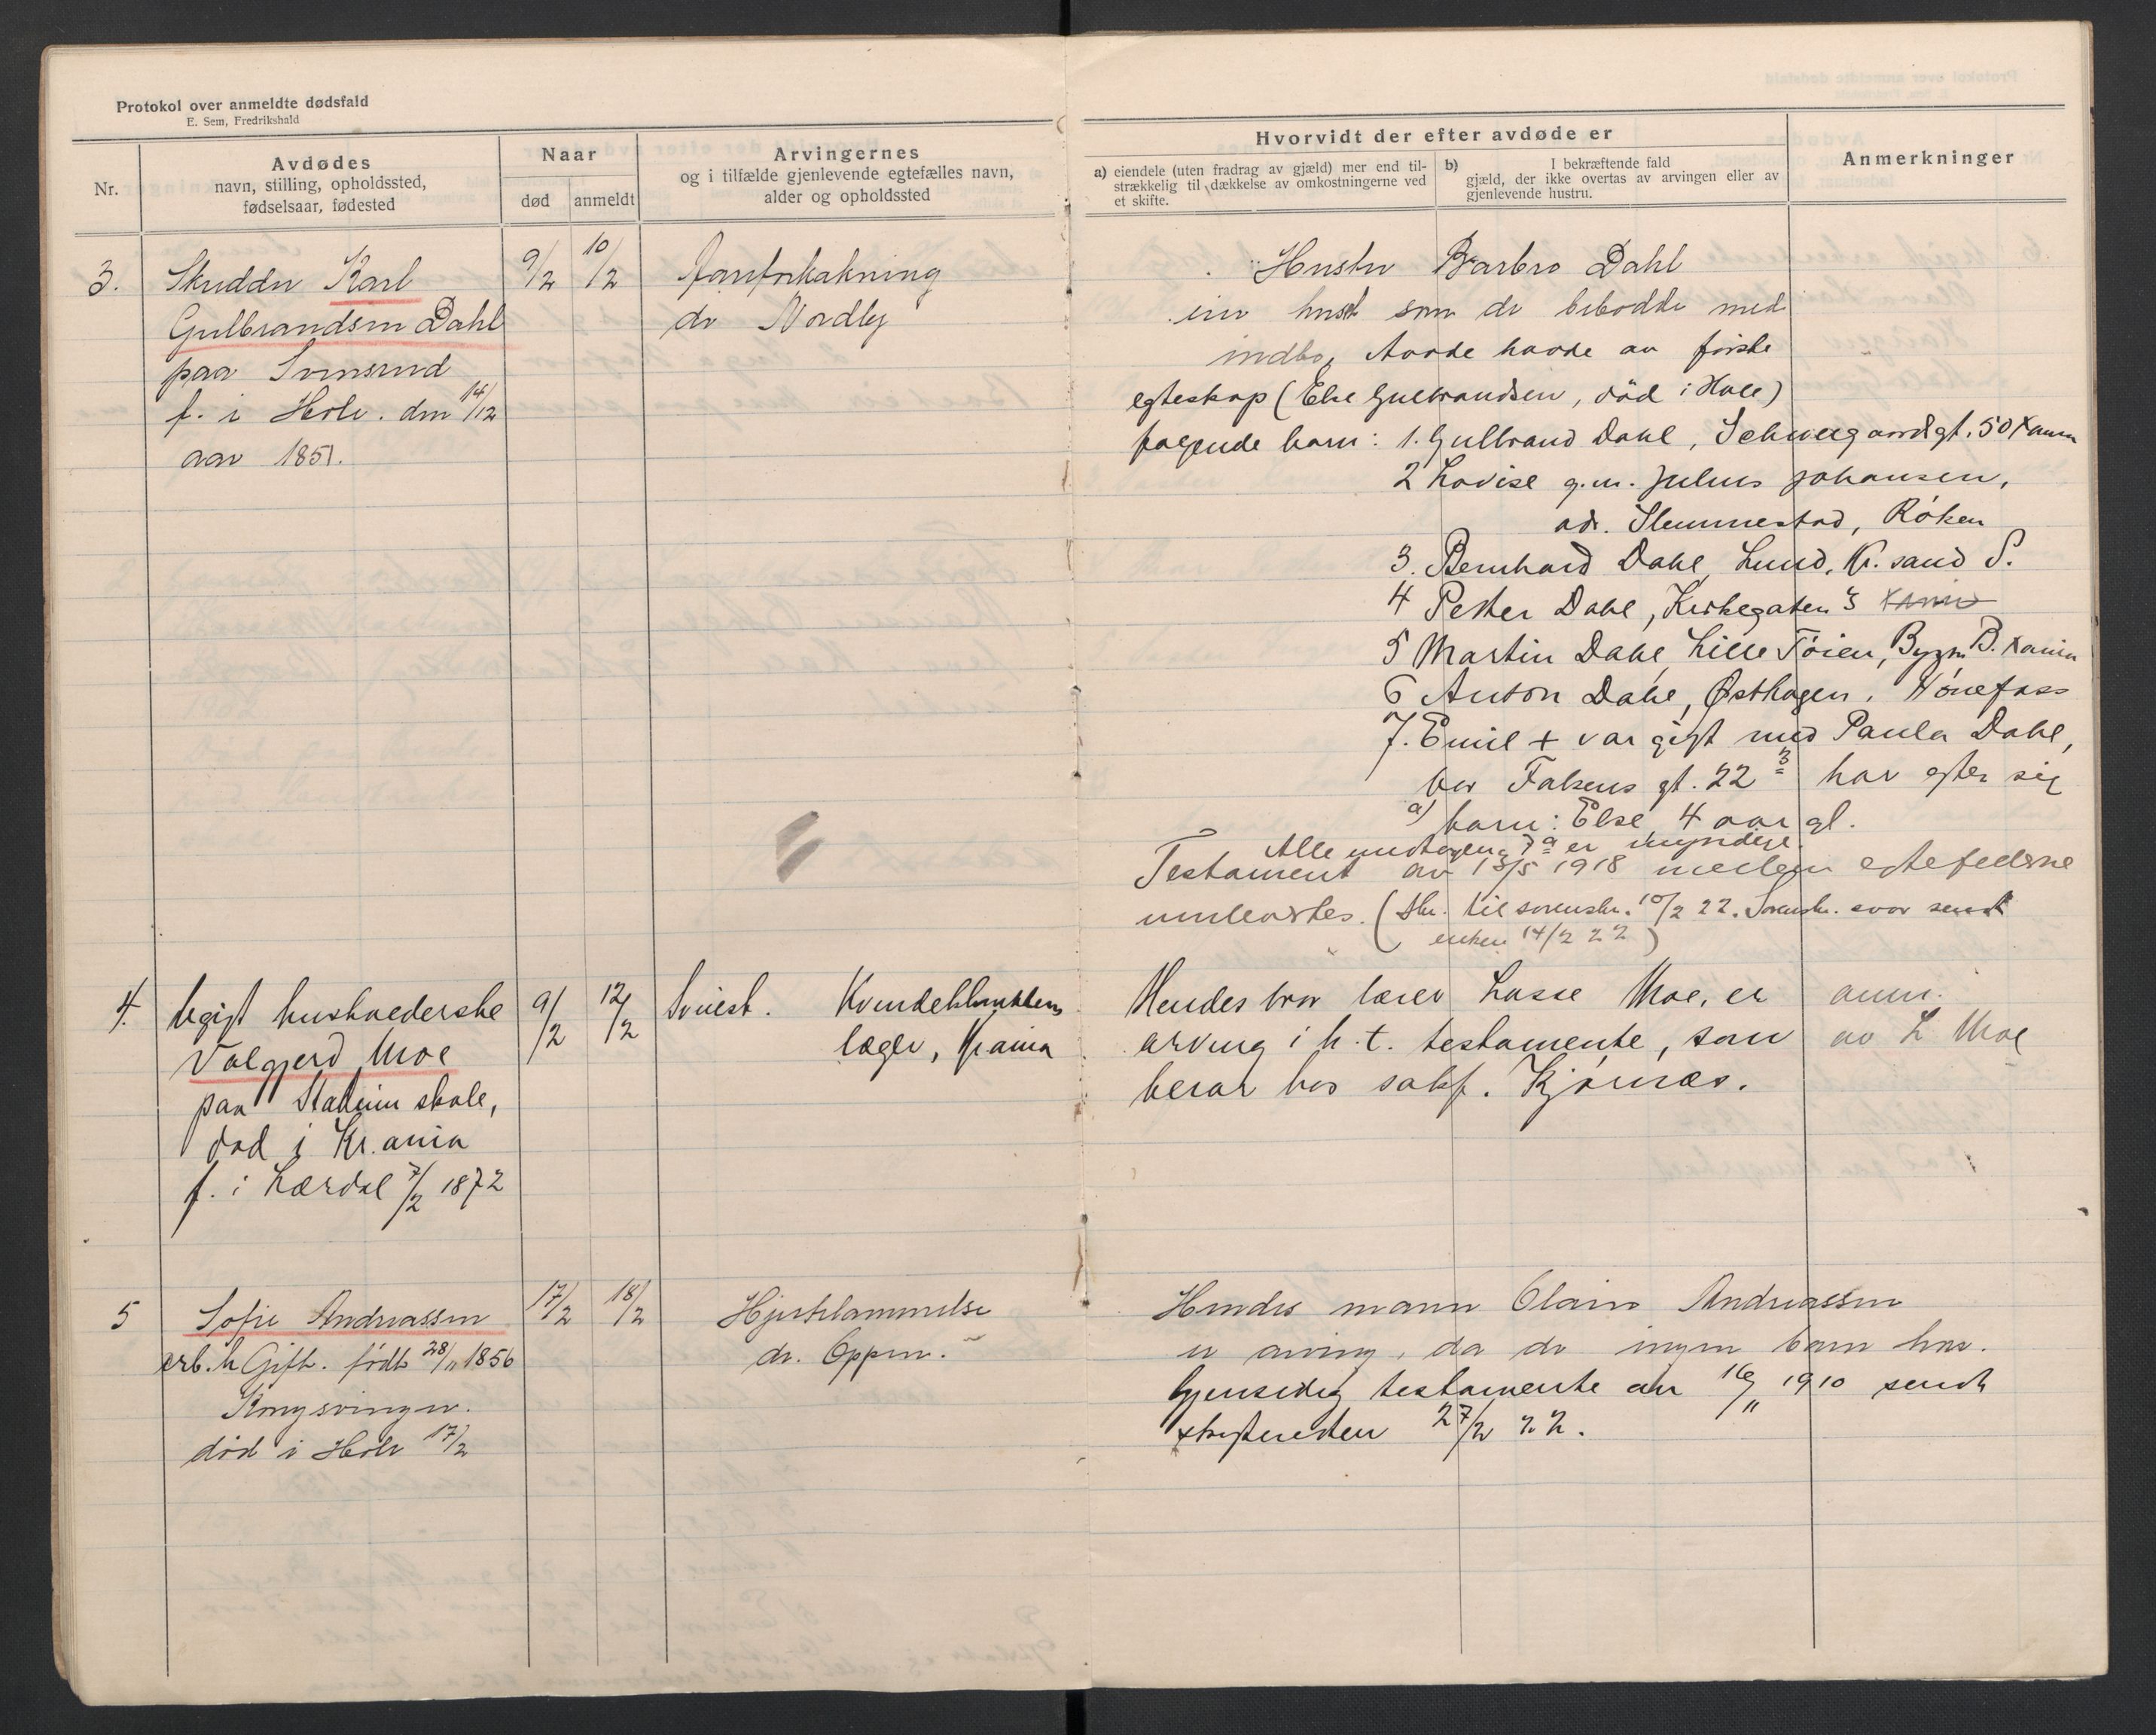 Protokol over anmeldte dødsfald
E. Sem, Fredrikshald
Nr.
Avdødes
navn, stilling, opholdssted,
fødselsaar, fødested
Naar
død
anmeldt
Arvingernes
og i tilfælde gjenlevende egtefælles navn,
alder og opholdssted
Hvorvidt der efter avdøde er
a) eiendele (uten fradrag av gjæld) mer end til-
strækkelig til dækkelse av omkostningerne ved
et skifte.
b) I bekræftende fald
gjæld, der ikke overtas av arvingen eller av
gjenlevende hustru.
Anmerkninger
3.
Karl
Gulbrandsen Dahl
paa
f. i Hole. den 14/12
aar 1851.
9/2
10/2
Aareforkalkning
dr Nordby
Hustru Barbro Dahl
som de bebodde med
indbo, havde av første
egteskap (Else Gulbrandsen, død i Hole)
følgende barn: 1. Gulbrand Dahl, Schweigaardsgt. 50 Xania
2 Lovise g.m. Julius Johansen,
adr. Slemmestad, Röken
3. Bernhard Dahl, Lund, Kr. sand S.
4 Petter Dahl, Kirkegaten 3 Xania
5 Martin Dahl, Lille Töien, Bygn B. Xania
6 Anton Dahl, Østhagen, Hönefoss
7. Emil + var gift med Paula Dahl,
bor Falsens gt. 22 3 har efter sig
a) barn: Else, 4 aar gl.
Alle undtagen 7 a er myndige.
Testament av 13/5 1918 mellem egtefellerne
(Skr. til sorenskr. 10/2 22. Sorenskr. svar sendt
enken 14/2 22)
4.
Ugift husholderske
Valgjerd Moe
paa skole,
død i Kr.ania
f. i Lærdal 7/2 1872
9/2
12/2
Kvindeklinikkens
læge, Krania
Hendes bror lærer Lasse Moe, er
arving i h.t. testamente, som
beror hos sakf. Kjørnæs.
anm.
av L Moe
5
Sofie Andreassen
arb. h Gift. født 28/11 1856
Kongsvinger.
død i Hole 17/2
17/2
18/2
Hjertelammelse
dr. Oppen.
Hendes mann Olaus Andreassen
er arving, da de ingen barn har.
Gjensidig testamente av 16/11 1910 sendt
skifteretten 27/2 22.